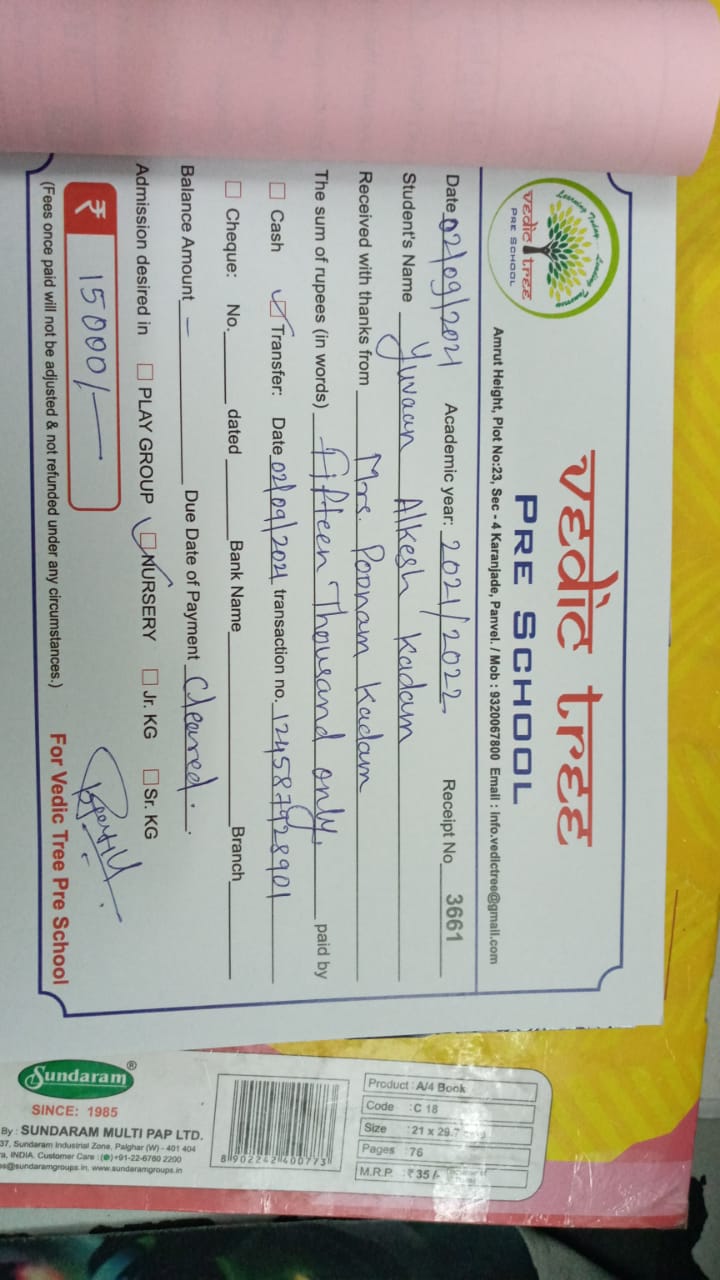 Learning Today... Leading Tomorrow
vedic tree
PRE SCHOOL
vedic tree
PRE SCHOOL
Amrut Height, Plot No:23, Sec - 4 Karanjade, Panvel. / Mob : 9320067800 Email : info.vedictree@gmail.com
Date 02/09/2021 Academic year: 2021/2022 Receipt No 3661
Student's Name Yuvaan Alkesh Kadam
Received with thanks from Mrs. Poonam Kadam
The sum of rupees (in words) Fifteen Thousand only, paid by
Cash Transfer: Date 02/09/2021 transaction no. 124587928901
Cheque: No. dated Bank Name Branch
Balance Amount - Due Date of Payment Cleared.
Admission desired in PLAY GROUP NURSERY Jr. KG Sr. KG
₹ 15000/-
(Fees once paid will not be adjusted & not refunded under any circumstances.)
For Vedic Tree Pre School
Sundaram®
SINCE: 1985
By : SUNDARAM MULTI PAP LTD.
37, Sundaram Industrial Zone, Palghar (W) - 401 404
INDIA. Customer Care : +91-22-6760 2200
@sundaramgroups.in, www.sundaramgroups.in
8 902242 400773
Product : A/4 Book
Code : C 18
Size : 21 x 29.7
Pages : 76
M.R.P. : ₹ 35/-